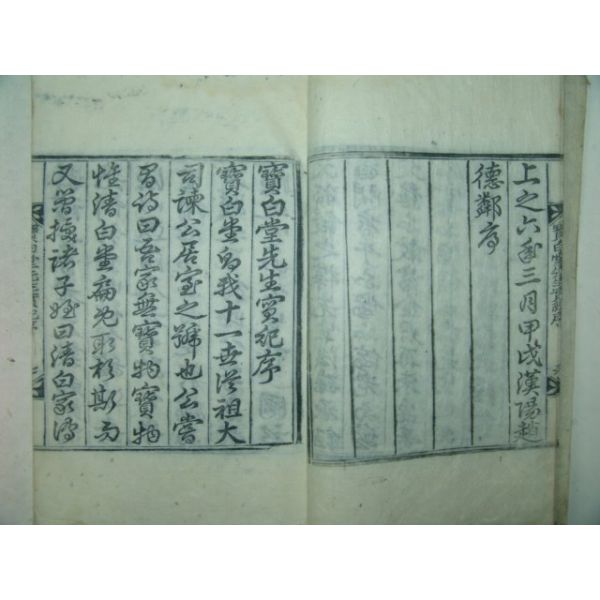 上之六年三月甲戌漢陽趙
德鄰序
寶白堂先生實紀序
寶白堂我十一世從祖大
司諫公居室之號也公嘗
有詩曰吾家無寶物寶物
惟清白堂扁
又嘗授諸子姪曰清白家傳